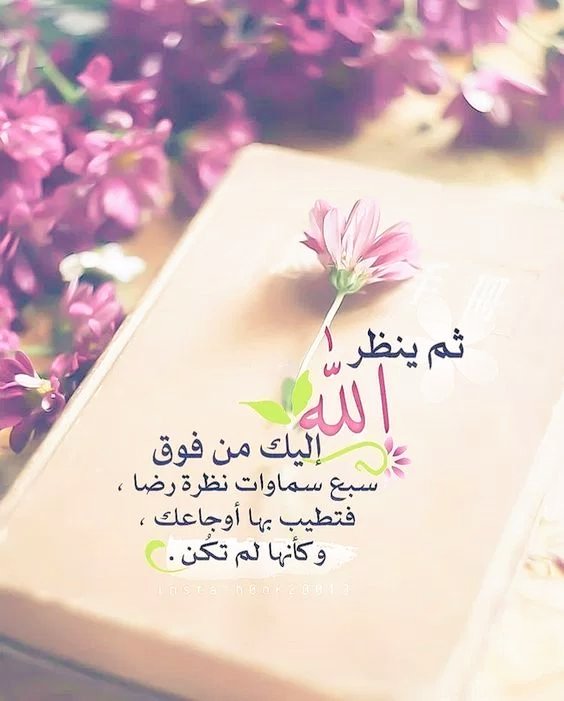 ثم ينظر
الله
إليك من فوق
سبع سماوات نظرة رضا ،
فتطيب بها أوجاعك ،
وكأنها لم تكُن .